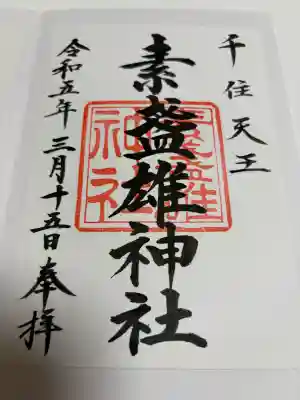 千住天王
素盞雄神社
令和五年三月十五日奉拝